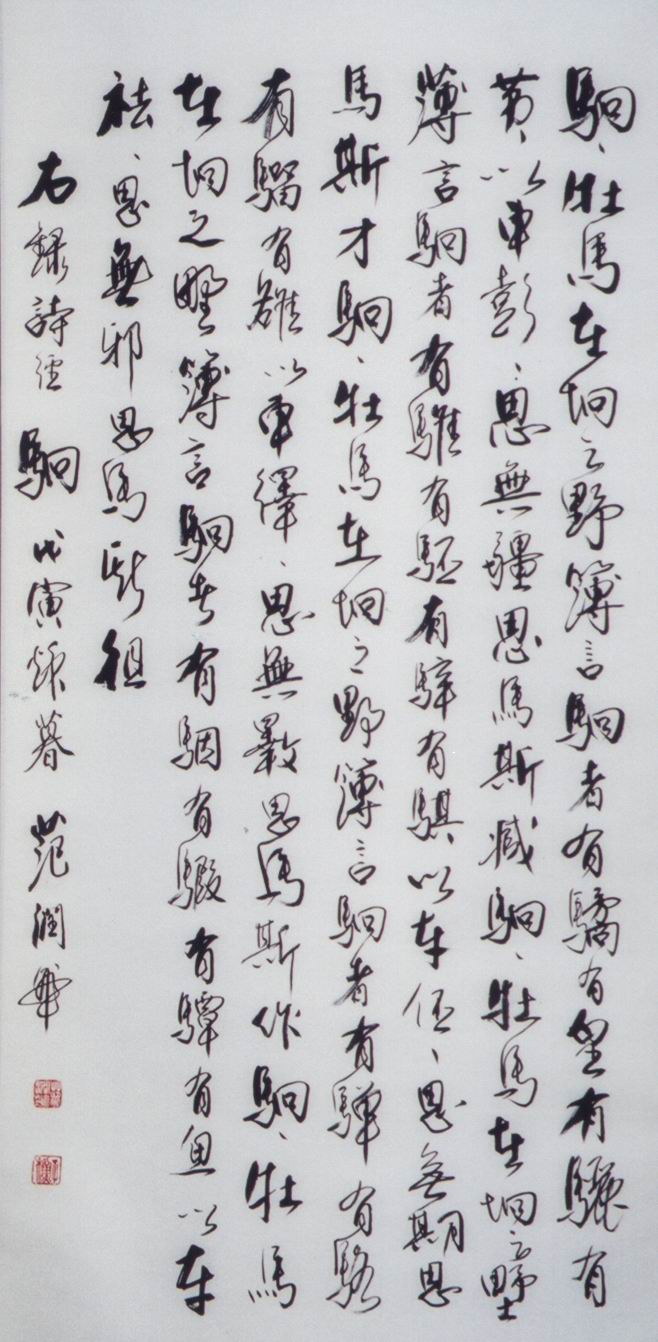 駉、牡馬在坰之野簿言駉者有驕有皇有驪有
黄、以車彭、思無疆思馬斯臧駉、牡馬在坰之野
薄言駉者有騅有駓有騂有騏以车伾、思無期思
馬斯才駉、牡馬在坰之野簿言駉者有驒有駱
有騮有雒以車繹、思無斁思馬斯作駉、牡馬
在坰之野簿言駉者有駰有騢有驔有魚以车
祛、思無邪思馬斯徂
右錄詩經 駉 戊寅秌暮 范潤華